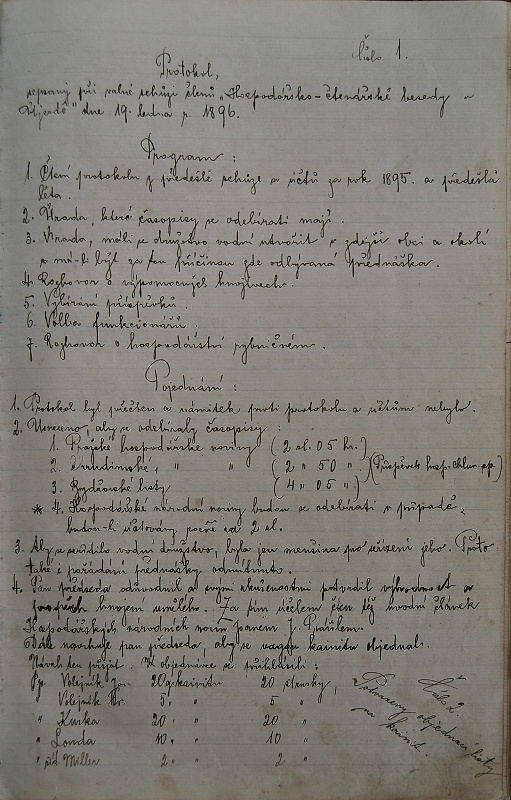 Číslo 1.
Protokol,
sepsaný při valné schůzi členů „Hospodářsko-čtenářské besedy v
Újezdě" dne 19. ledna r. 1896.
Program :
1. Čtení protokolu z předešlé schůze a účtů za rok 1895. a předešlá
léta.
2. Úrada, které časopisy se odebírati mají.
3. Úrada, má-li se družstvo vodní utvořit v zdejší obci a okolí
a má-li být za tou příčinou zde odbývaná přednáška.
4. Rozhovor o výpomocných hnojivech.
5. Vybírání příspěvků.
6. Volba funkcionářů.
7. Rozhovor o hospodářství rybničném.
Pojednání :
1. Protokol byl přečten a námitek proti protokolu a účtům nebylo.
2. Usneseno, aby se odebíraly časopisy :
1. Pražské hospodářské noviny (2 zl. 05 kr.)
2. Chrudimské, " " (2 " 50 " ) (Příspěvek hosp.
3. listy (4 " 05 " )
* 4. Hospodářské národní noviny budou se odebírati v případě,
budou-li účtovány počně od 2 zl.
3. Aby se zřídilo vodní družstvo, byla jen menšina pro zřízení jeho. Proto
také i pořádání přednášky odmítnuto.
4. Pan předseda odůvodnil a svými zkušenostmi potvrdil výhodnost a
prospěch hnojení umělého. Za tím účelem čten též úvodní článek
Hospodářských národních novin panem J.
Dále navrhuje pan předseda, aby se vagon kainitu objednal.
Návrh ten přijat. K objednávce se přihlásili :
Pp. Volejník Jan 20 q kainitu 20 strusky,
" Volejník Fr. 5 " " 5 "
" Kurka 20 " " 20 "
" Londa 10 " " 10 "
" Miller 2 " " 2 "
Číslo 2.
Potvrzeny objednací listy
na kainit.